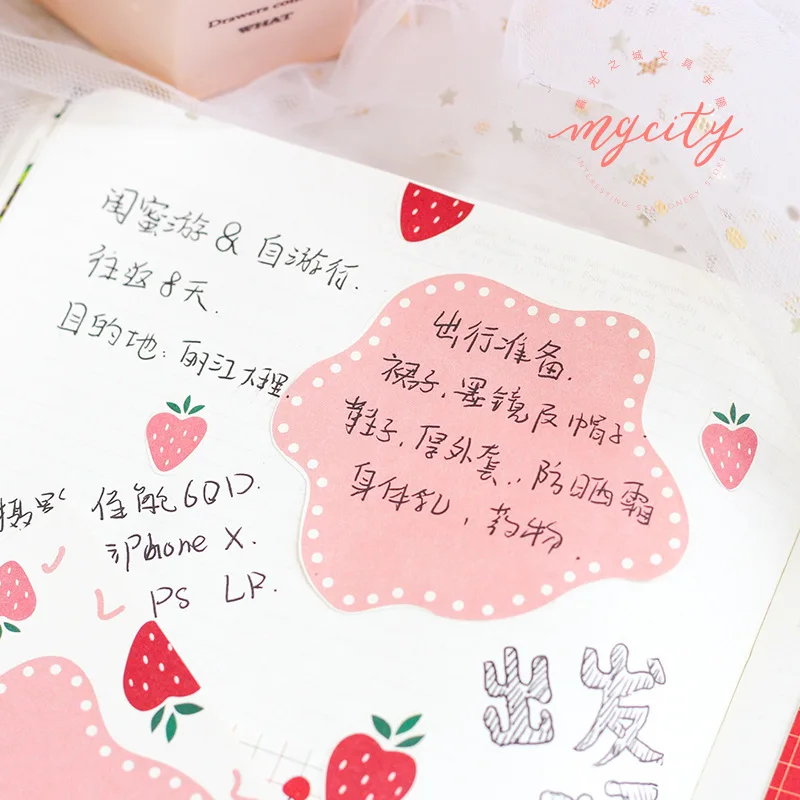 Drawers
WHAT
晨光之城文具字圈
mycity
INTERESTING STATIONERY STORE
闺蜜游 & 自游行.
往返8天.
目的地: 丽江大理
出行准备.
裙子, 墨镜及帽子.
鞋子, 厚外套, 防晒霜
身体乳, 药物.
佳能60D.
iPhone X.
PS LR.
出发